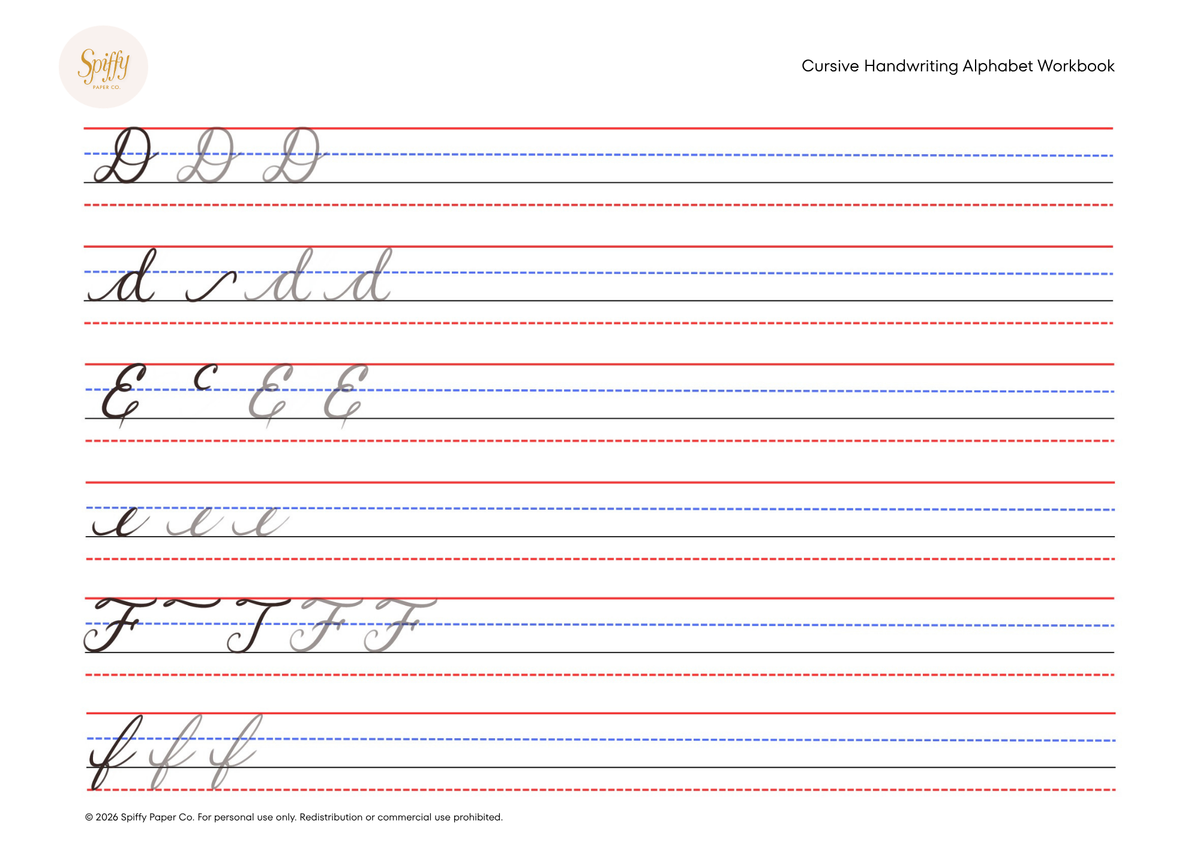 Spiffy
PAPER CO.
Cursive Handwriting Alphabet Workbook
D D D
d d d
E E E
e e e
F F F
f f f
© 2026 Spiffy Paper Co. For personal use only. Redistribution or commercial use prohibited.